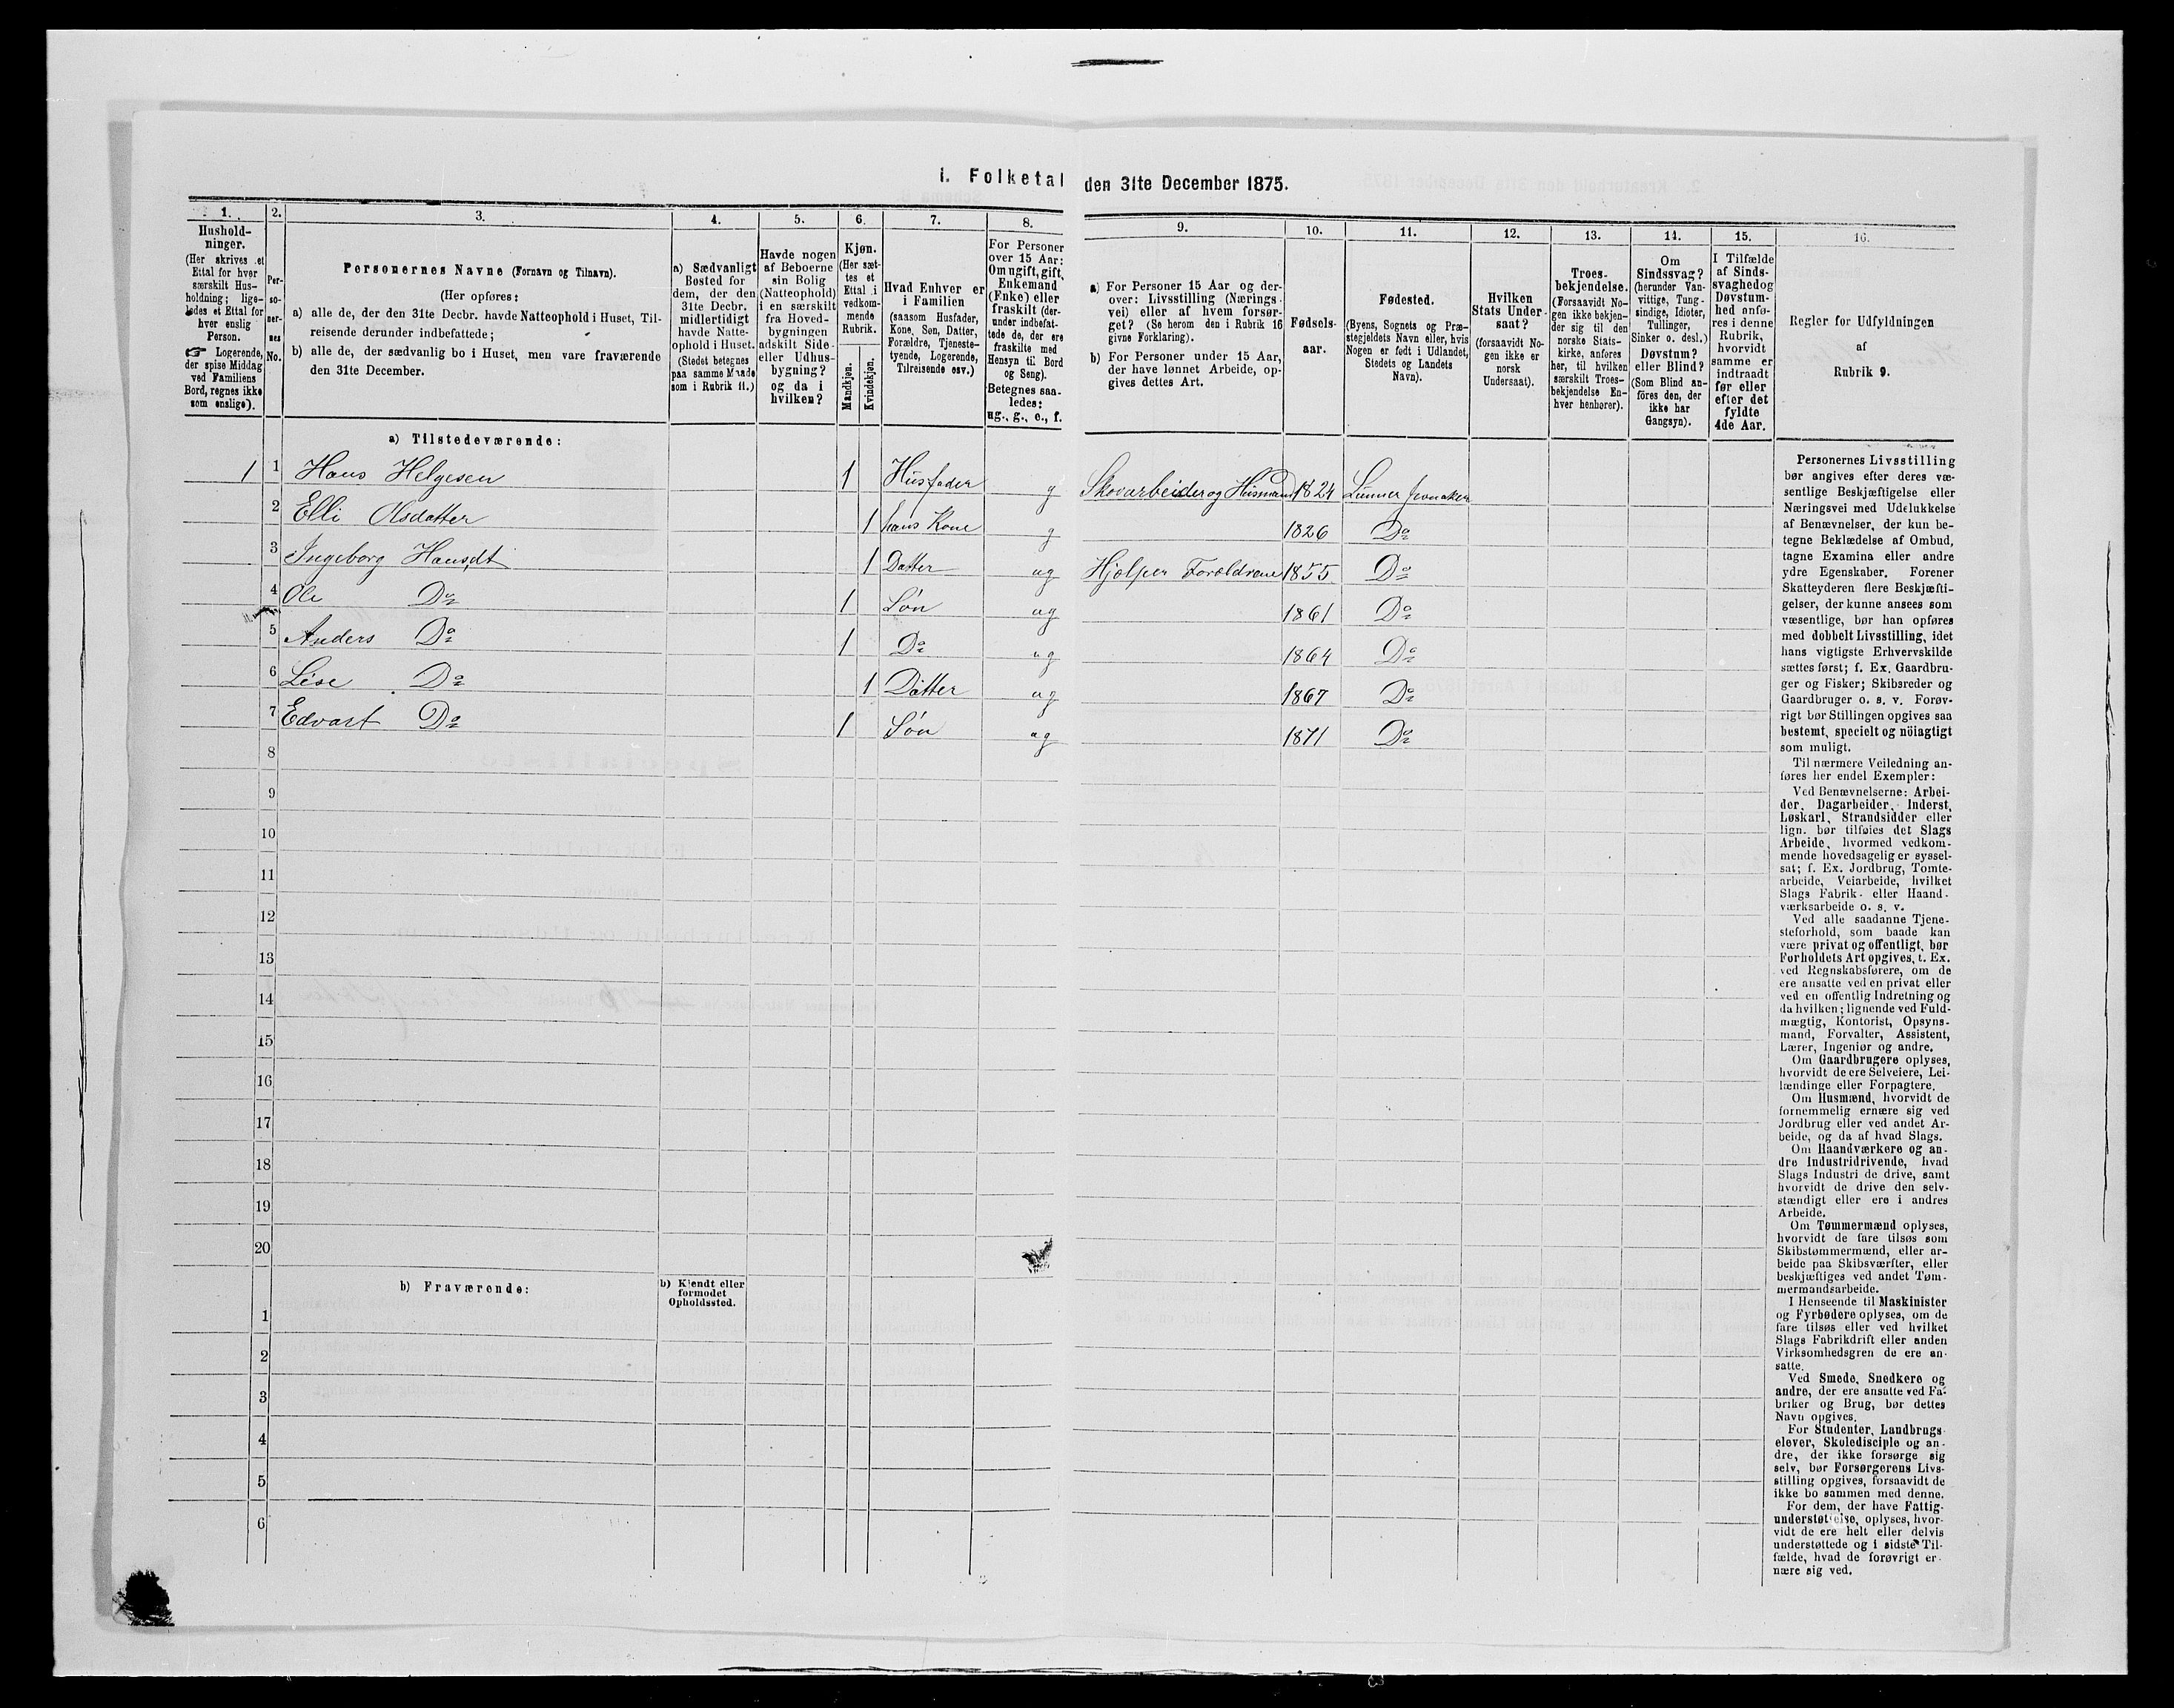 1. Folketal den 31te December 1875.
1.
Hushold-
ninger.
(Her skrives et
Ettal for hver
særskilt Hus-
holdning; lige-
ledes et Ettal for
hver enslig
Person.
☞ Logerende,
der spise Middag
ved Familiens
Bord, regnes ikke
som enslige).
2.
Per-
so-
ner-
nes
No.
3.
Personernes Navne (Fornavn og Tilnavn).
(Her opføres:
a) alle de, der den 31te Decbr. havde Natteophold i Huset, Til-
reisende derunder indbefattede;
b) alle de, der sædvanlig bo i Huset, men vare fraværende
den 31te December.
4.
a) Sædvanligt
Bosted for
dem, der den
31te Decbr.
midlertidigt
havde Natte-
ophold i Huset.
(Stedet betegnes
paa samme Maade
som i Rubrik 11.)
5.
Havde nogen
af Beboerne
sin Bolig
(Natteophold)
i en særskilt
fra Hoved-
bygningen
adskilt Side-
eller Udhus-
bygning?
og da i
hvilken?
6.
Kjøn.
(Her sæt-
tes et
Ettal i
vedkom-
mende
Rubrik.
Mandkjøn.
Kvindekjøn.
7.
Hvad Enhver er
i Familien
(saasom Husfader,
Kone, Søn, Datter,
Forældre, Tjeneste-
tyende, Logerende,
Tilreisende osv.)
8.
For Personer
over 15 Aar:
Om ugift, gift,
Enkemand
(Enke) eller
fraskilt (der-
under indbefat-
tede de, der ere
fraskilte med
Hensyn til Bord
og Seng).
Betegnes saa-
ledes:
ug., g., e., f.
9.
a) For Personer 15 Aar og der-
over: Livsstilling (Nærings-
vei) eller af hvem forsør-
get? (Se herom den i Rubrik 16
givne Forklaring).
b) For Personer under 15 Aar,
der have lønnet Arbeide, op-
gives dettes Art.
10.
Fødsels-
aar.
11.
Fødested.
(Byens, Sognets og Præ-
stegjeldets Navn eller, hvis
Nogen er født i Udlandet,
Stedets og Landets
Navn).
12.
Hvilken
Stats Under-
saat?
(forsaavidt No-
gen ikke er
norsk
Undersaat).
13.
Troes-
bekjendelse.
(Forsaavidt No-
gen ikke bekjen-
der sig til den
norske Stats-
kirke, anføres
her, til hvilken
særskilt Troes-
bekjendelse En-
hver henhører).
14.
Om
Sindssvag?
(herunder Van-
vittige, Tung-
sindige, Idioter,
Tullinger,
Sinker o. desl.)
Døvstum?
eller Blind?
(Som Blind an-
føres den, der
ikke har
Gangsyn).
15.
I Tilfælde
af Sinds-
svaghed og
Døvstum-
hed anfø-
res i denne
Rubrik,
hvorvidt
samme er
indtraadt
før eller
efter det
fyldte
4de Aar.
16.
Regler for Udfyldningen
af
Rubrik 9.
a) Tilstedeværende:
1 1 Hans Helgesen 1 Husfader g Skovarbeider og Husmand 1824 Lunner Jevnaker
2 Elli Olsdatter 1 hans Kone g 1826 Do
3 Ingeborg Hansdt 1 Datter ug Hjelper Forældrene 1855 Do
4 Ole Do 1 Søn ug 1861 Do
5 Anders Do 1 Do ug 1864 Do
6 Lise Do 1 Datter ug 1867 Do
7 Edvart Do 1 Søn ug 1871 Do
8
9
10
11
12
13
14
15
16
17
18
19
20
b) Fraværende:
b) Kjendt eller
formodet
Opholdssted.
1
2
3
4
5
6
Personernes Livsstilling
bør angives efter deres væ-
sentlige Beskjæftigelse eller
Næringsvei med Udelukkelse
af Benævnelser, der kun be-
tegne Beklædelse af Ombud,
tagne Examina eller andre
ydre Egenskaber. Forener
Skatteyderen flere Beskjæfti-
gelser, der kunne ansees som
væsentlige, bør han opføres
med dobbelt Livsstilling, idet
hans vigtigste Erhvervskilde
sættes først; f. Ex. Gaardbru-
ger og Fisker; Skibsreder og
Gaardbruger o. s. v. Forøv-
rigt bør Stillingen opgives saa
bestemt, specielt og nöiagtigt
som muligt.
Til nærmere Veiledning an-
føres her endel Exempler:
Ved Benævnelserne: Arbei-
der, Dagarbeider, Inderst,
Løskarl, Strandsidder eller
lign. bør tilføies det Slags
Arbeide, hvormed vedkom-
mende hovedsagelig er syssel-
sat; f. Ex. Jordbrug, Tomte-
arbeide, Veiarbeide, hvilket
Slags Fabrik- eller Haand-
værksarbeide o. s. v.
Ved alle saadanne Tjene-
steforhold, som baade kan
være privat og offentligt, bør
Forholdets Art opgives, t. Ex.
ved Regnskabsførere, om de
ere ansatte ved en privat eller
ved en offentlig Indretning og
da hvilken; lignende ved Fuld-
mægtig, Kontorist, Opsyns-
mand, Forvalter, Assistent,
Lærer, Ingeniør og andre.
Om Gaardbrugere oplyses,
hvorvidt de ere Selveiere, Lei-
lændinge eller Forpagtere.
Om Husmænd, hvorvidt de
fornemmelig ernære sig ved
Jordbrug eller ved andet Ar-
beide, og da af hvad Slags.
Om Haandværkere og an-
dre Industridrivende, hvad
Slags Industri de drive, samt
hvorvidt de drive den selv-
stændigt eller ere i andres
Arbeide.
Om Tømmermænd oplyses,
hvorvidt de fare tilsøs som
Skibstømmermænd, eller ar-
beide paa Skibsværfter, eller
beskjæftiges ved andet Tøm-
mermandsarbeide.
I Henseende til Maskinister
og Fyrbødere oplyses, om de
fare tilsøs eller ved hvilket
Slags Fabrikdrift eller anden
Virksomhedsgren de ere an-
satte.
Ved Smede, Snedkere og
andre, der ere ansatte ved Fa-
briker og Brug, bør dettes
Navn opgives.
For Studenter, Landbrugs-
elever, Skoledisciple og an-
dre, der ikke forsørge sig
selv, bør Forsørgerens Livs-
stilling opgives, forsaavidt de
ikke bo sammen med denne.
For dem, der have Fattig-
understøttelse, oplyses, hvor-
vidt de ere helt eller delvis
understøttede og i sidste Til-
fælde, hvad de forøvrigt er-
nære sig ved.